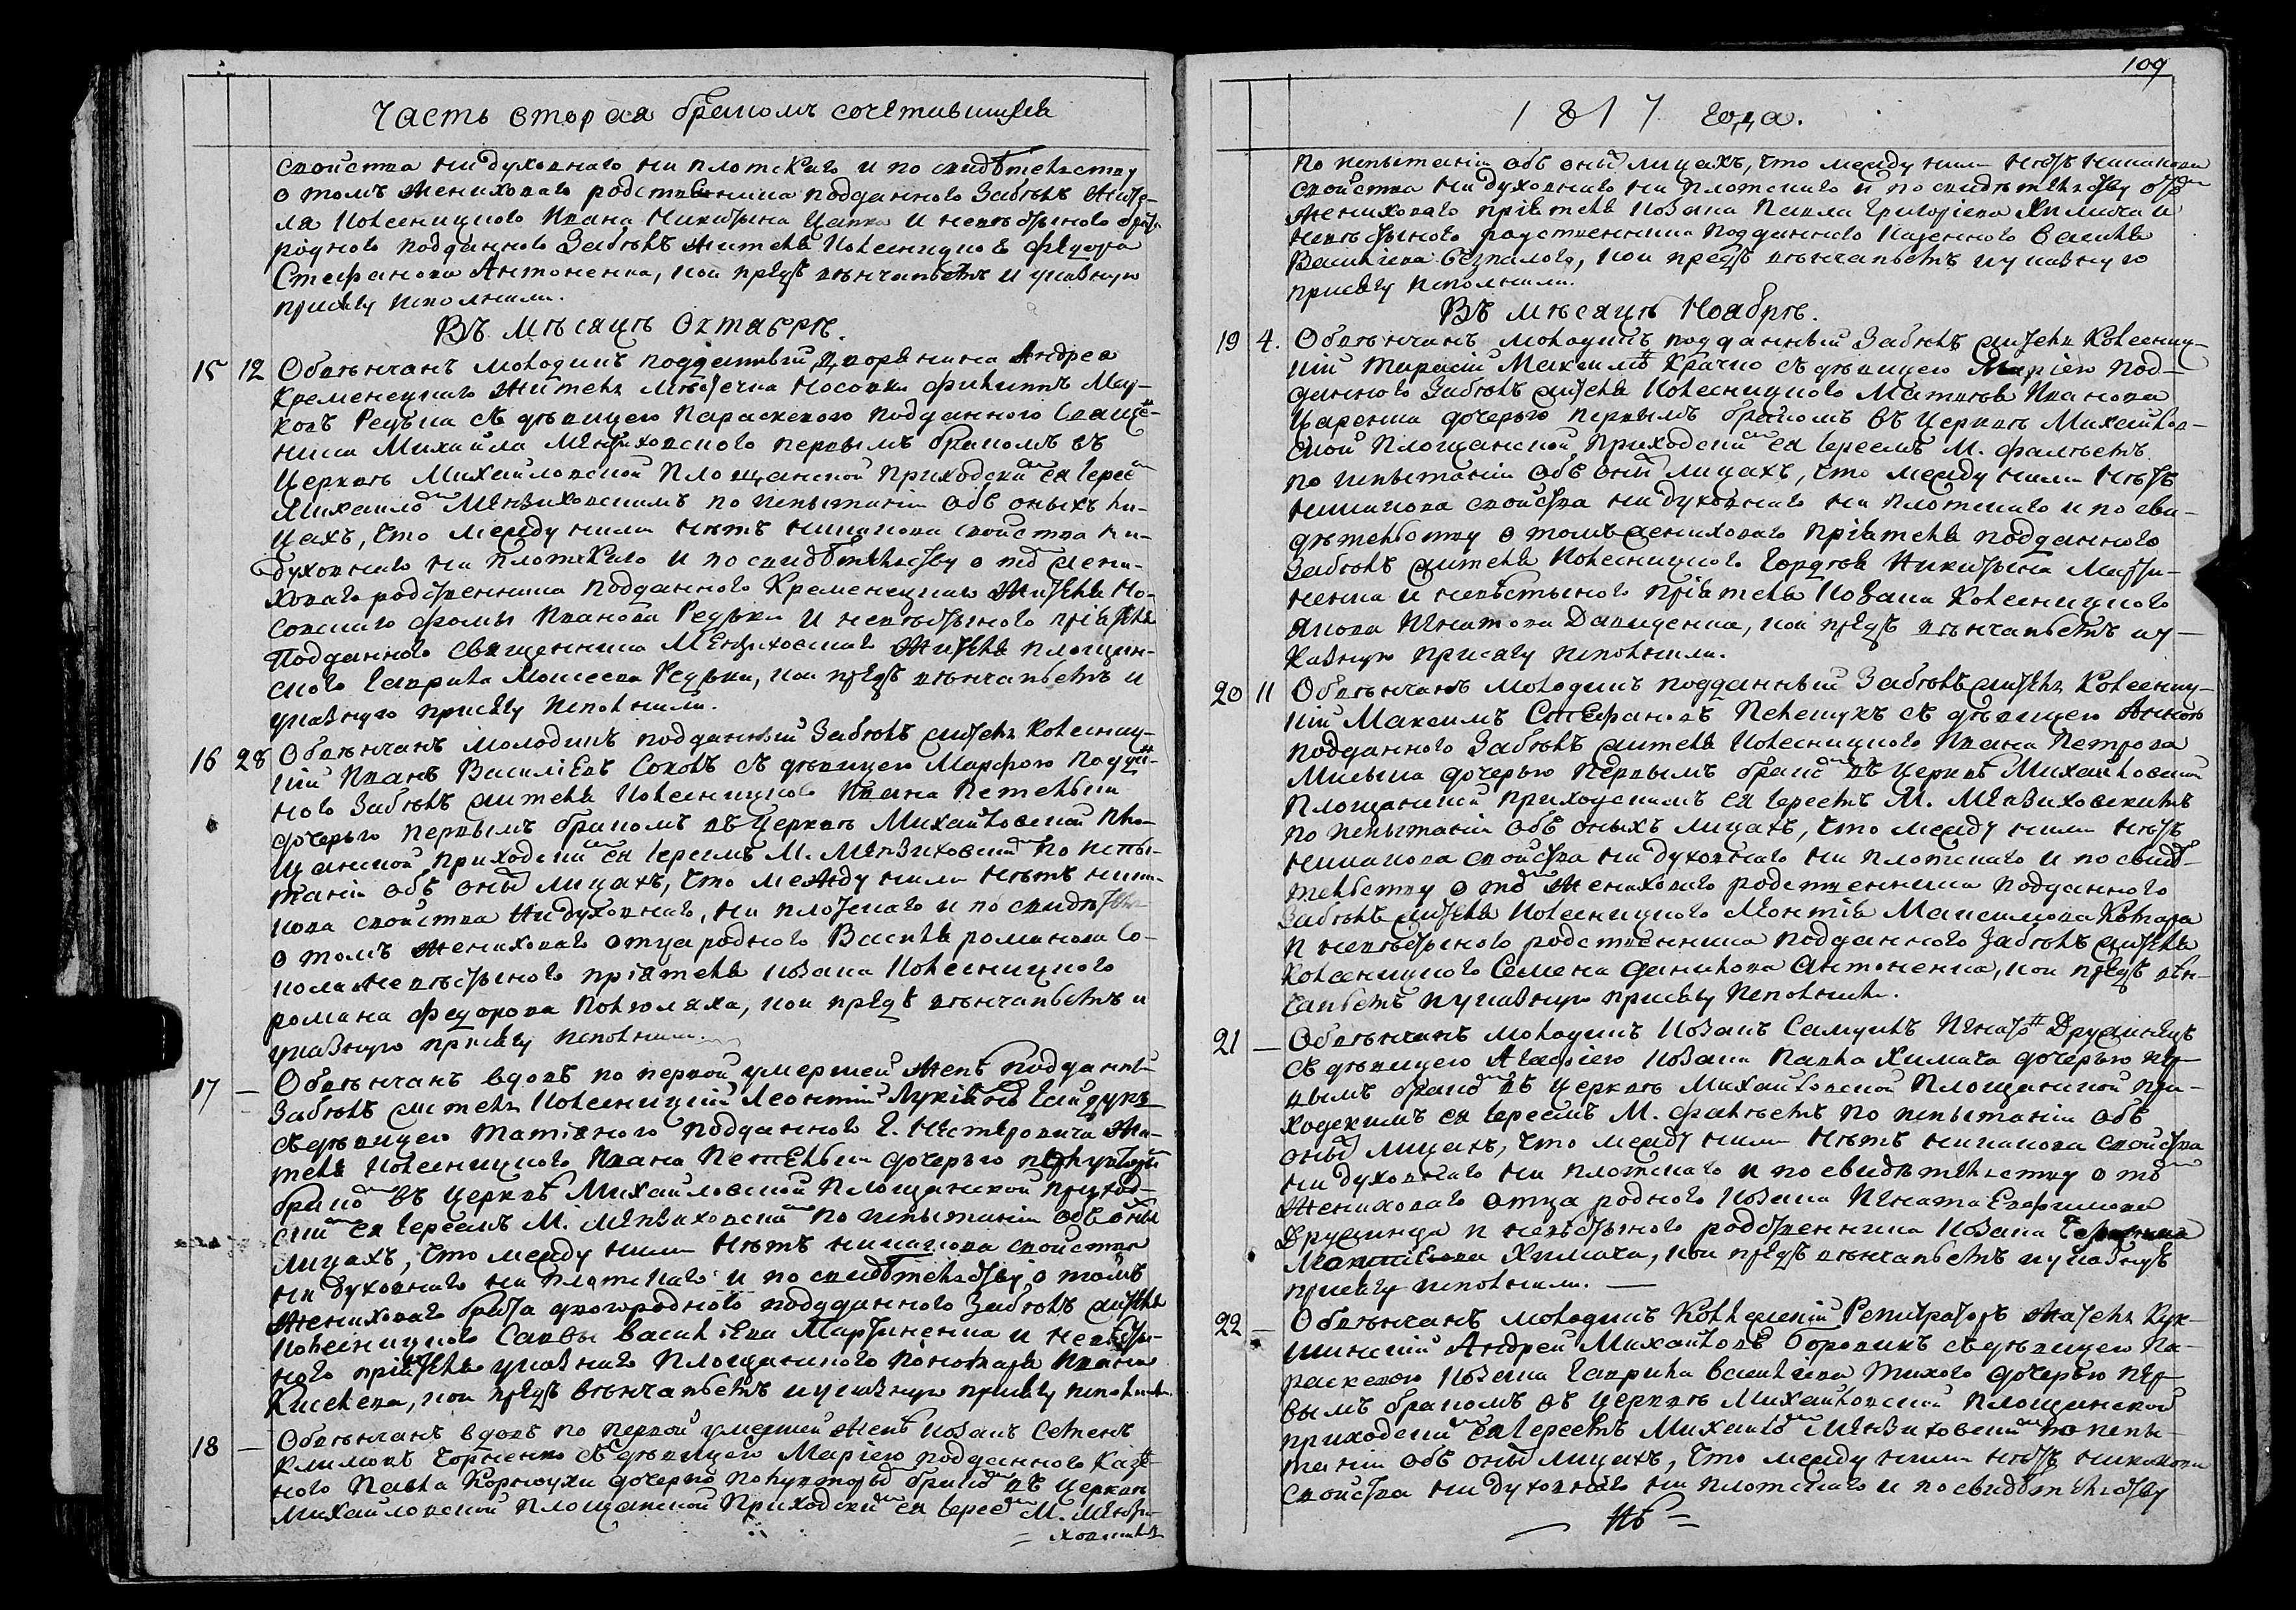 Часть вторая бракомъ сочетавшихся
свойства ни духовнаго ни плотскаго и по свидѣтельству
о томъ жениховаго родственника подданного Забѣлъ жите-
ля Колесницкого Ивана Никитина Цапка и невѣстиного брата
родного подданного Забѣлъ жителя Колесницкого Федора
Стефанова Антоненка, кои предъ вѣнчаніемъ и указную
присягу исполнили.
Въ мѣсяцѣ Октабрѣ.
15 12 Обвѣнчанъ молодикъ подданный дворянина Андрея
Кременецкого житель мѣстечка Носовки Филиппъ Мар-
ковъ Редька съ дѣвицею Параскевою подданного Священ-
ника Михайла Мензиховского первымъ бракомъ въ
Церквѣ Михайловской Площанской Приходским ея Іереем
Михаиломъ Мензиховскимъ по испытаніи объ оныхъ ли-
цахъ, что между ними нѣтъ никакова свойства ни
духовнаго ни плотскаго и по свидѣтельству о томъ жени-
ховаго родственника подданного Кременецкаго жителя Но-
совского Фомы Иванова Редьки и невѣстиного пріятеля
Подданного Священника Мензиховскаго жителя Площан-
ского Гаврила Моисеева Редьки, кои предъ вѣнчаніемъ и
указную присягу исполнили.
16 28 Обвѣнчанъ молодикъ подданный Забѣлъ житель Колесниц-
кій Иванъ Василіевъ Соколъ съ дѣвицею Марфою Поддан-
ного Забѣлъ жителя Колесницкого Ивана Петельки
дочерью первымъ бракомъ въ Церквѣ Михайловской Пло-
щанской приходским ея Іереемъ М. Мензиховским по испы-
таніи объ оных лицахъ, что между ними нѣтъ ника-
кова свойства ни духовнаго, ни плотскаго и по свидѣтель
о томъ жениховаго отца родного Василя романова Со-
кола невѣстиного пріятеля козака Колесницкого
романа федорова Полюляха, кои предъ вѣнчаніемъ и
указную присягу исполнили.
17 — Обвѣнчанъ вдовъ по первой умершей женѣ подданный
Забѣлъ житель Колесницкій Леонтий Лукіяновъ Гайдукъ
съ дѣвицею подданного Г. Нестеровича жи-
теля Колесницкого Ивана Петельки дочерью
браком въ Церквѣ Михайловской Площанской приход-
ским ея Іереемъ М. Мензиховским по испытаніи объ оных
лицахъ, что между ними нѣтъ никакова свойства
ни духовнаго ни плотскаго и по свидѣтельству о томъ
жениховаго брата двогородного поддданного Забѣлъ жителя
Колесницкого Саввы Василіева Мартиненка и невѣсти-
ного пріятеля указнаго Площанского пономара Ивана
Киселева, кои предъ вѣнчаніемъ и указную присягу исполнили.
18 — Обвѣнчанъ вдовъ по первой умершей женѣ козакъ Семенъ
Климовъ съ дѣвицею Маріею подданного Казен-
ного Павла Корноухи дочерью полувторым браком въ Церкви
Михайловской Площанской Приходским ея Іереем М. Мензи-
ховским
109
1817 года.
По испытаніи объ оных лицахъ, что между ними нѣтъ никакова
свойства ни духовнаго ни плотскаго и по свидѣтельству о томъ
жениховаго пріятеля козака Павла Григоріева Химича и
невѣстиного родственника подданного Казенного Василя
Василіева Безпалого, кои предъ вѣнчаніемъ и указную
присягу исполнили.
Въ мѣсяцѣ Ноябрѣ.
19 4. Обвѣнчанъ молодикъ подданный Забѣлъ житель Колесниц-
кій Тарасій Максимов съ дѣвицею Маріею под-
данного Забѣлъ жителя Колесницкого Матвѣя Иванова
Царенка дочерью первымъ бракомъ въ Церквѣ Михайлов-
ской Площанской, Приходским ея Іереемъ М.
по испытаніи объ оных лицахъ, что между ними нѣтъ
никакова свойства ни духовнаго ни плотскаго и по сви-
дѣтельству о томъ жениховаго пріятеля подданного
Забѣлъ жителя Колесницкого Гордѣя Никитина Марти-
ненка и невѣстыного пріятеля козака Колесницкого
Якова Игнатова Давиденка, кои предъ вѣнчаніемъ и у-
казную присягу исполнили.
20 11 Обвѣнчанъ молодикъ подданный Забѣлъ житель Колесниц-
кій Максимъ Стефановъ Пелешукъ съ дѣвицею Анною
подданного Забѣлъ жителя Колесницкого Ивана Петрова
дочерью первымъ браком въ Церквѣ Михайловской
Площанской приходскимъ ея Іереемъ М. Мензиховскимъ
по испытаніи объ оныхъ лицахъ, что между ними нѣтъ
никакова свойства ни духовнаго ни плотскаго и по свидѣ-
тельству о томъ жениховаго родственника подданного
Забѣлъ жителя Колесницкого Максимова
и невѣстиного родственника подданного Забѣлъ жителя
Колесницкого Семена Данилова Антоненка, кои предъ вѣн-
чаніемъ и указную присягу исполнили.
21 — Обвѣнчанъ молодикъ козакъ Самуилъ Игнатов
съ дѣвицею Агафіею козака Павла Химича дочерью пер-
вымъ браком въ Церквѣ Михайловской Площанской при-
ходскимъ ея Іереемъ М. по испытаніи объ
оных лицахъ, что между ними нѣтъ никакова свойства
ни духовнаго ни плотскаго и по свидѣтельству о томъ
жениховаго отца родного козака Игната Евфимова
и невѣстиного родственника козака
Химича, кои предъ вѣнчаніемъ и указную
присягу исполнили. —
22 — Обвѣнчанъ молодикъ Регистраторъ житель Кук-
шинскій Андрей Михайловъ Боровикъ съ дѣвицею Па-
раскевою козака Гаврила Василіева Тихого дочерью пер-
вымъ бракомъ въ Церквѣ Михайловской Площанской
приходским ея Іереемъ Михаиломъ Мензиховским по испы-
таніи объ оных лицахъ, что между ними нѣтъ никакова
свойства ни духовнаго ни плотскаго и по свидѣтельству